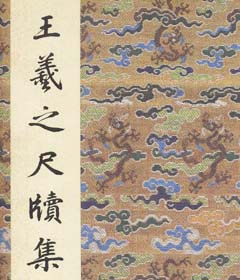 王羲之尺牘集